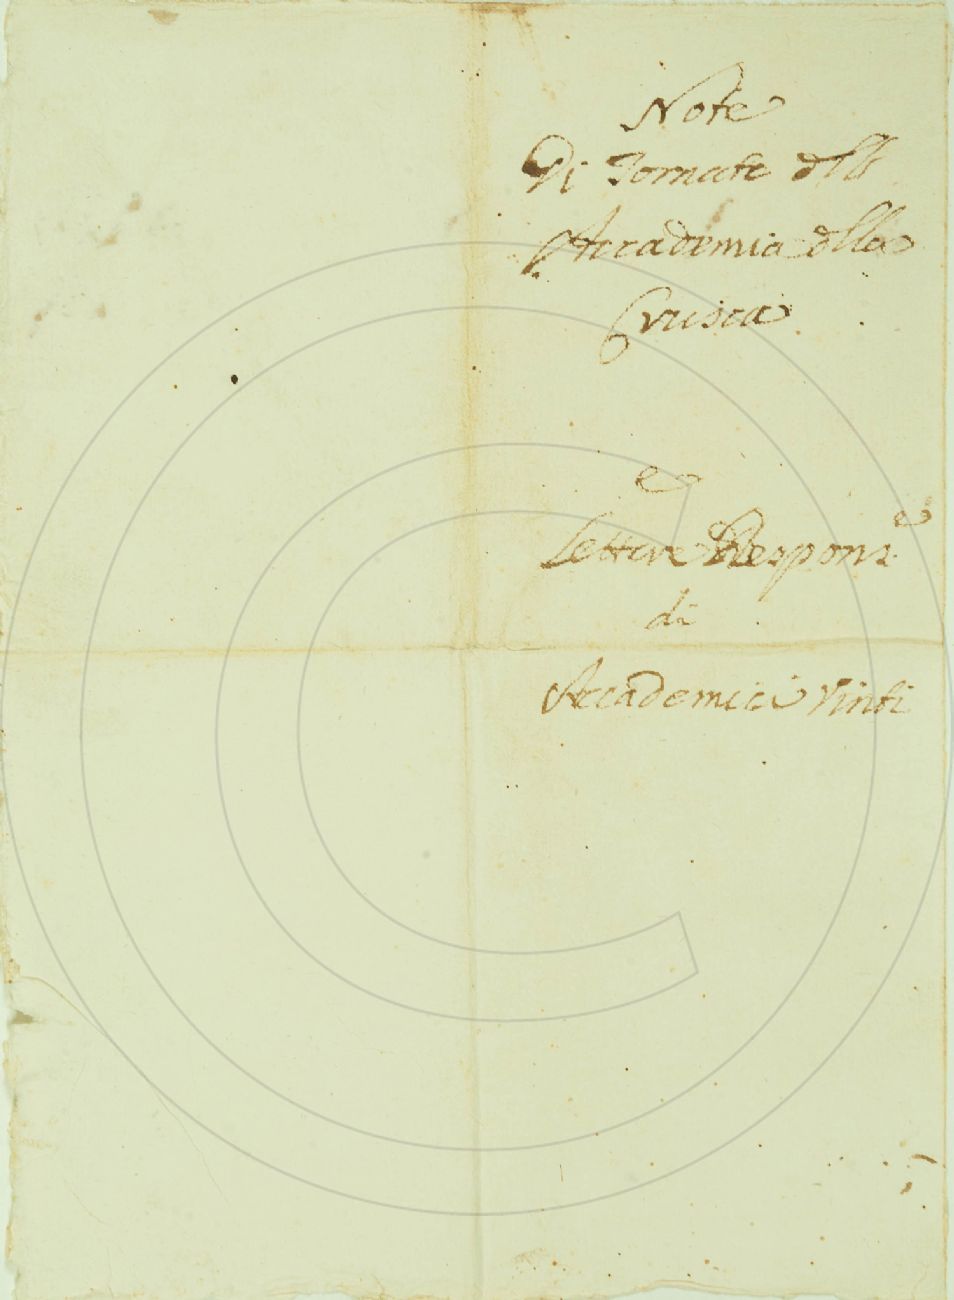 Note
Di Tornate dell
Accademia della
Crusca
e
Lettere Respons.e
di
Accademici Vinti